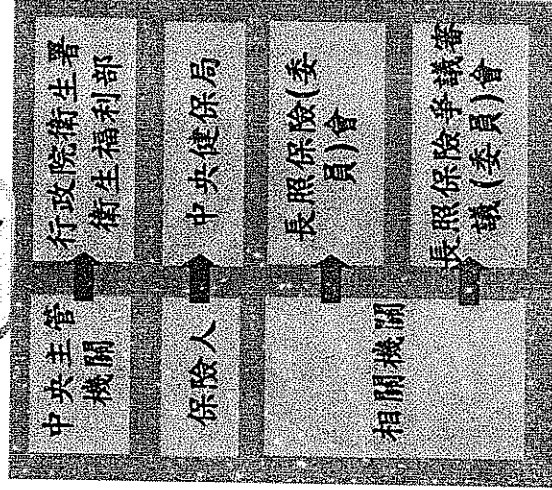 中央主管
機關
行政院衛生署
衛生福利部
保險人
中央健保局
相關機關
長照保險(委
員)會
長照保險爭議審
議(委員)會